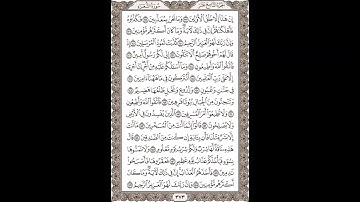 الجزء التاسع عشر سورة الشعراء
إِنْ هَٰذَا إِلَّا خُلُقُ الْأَوَّلِينَ ١٣٧ وَمَا نَحْنُ بِمُعَذَّبِينَ ١٣٨ فَكَذَّبُوهُ
فَأَهْلَكْنَٰهُمْ إِنَّ فِي ذَٰلِكَ لَآيَةً وَمَا كَانَ أَكْثَرُهُم مُّؤْمِنِينَ ١٣٩
وَإِنَّ رَبَّكَ لَهُوَ الْعَزِيزُ الرَّحِيمُ ١٤٠ كَذَّبَتْ ثَمُودُ الْمُرْسَلِينَ ١٤١
إِذْ قَالَ لَهُمْ أَخُوهُمْ صَٰلِحٌ أَلَا تَتَّقُونَ ١٤٢ إِنِّي لَكُمْ رَسُولٌ أَمِينٌ ١٤٣
فَاتَّقُوا اللَّهَ وَأَطِيعُونِ ١٤٤ وَمَا أَسْـَٔلُكُمْ عَلَيْهِ مِنْ أَجْرٍ إِنْ أَجْرِيَ
إِلَّا عَلَىٰ رَبِّ الْعَٰلَمِينَ ١٤٥ أَتُتْرَكُونَ فِي مَا هَٰهُنَا آمِنِينَ ١٤٦
فِي جَنَّٰتٍ وَعُيُونٍ ١٤٧ وَزُرُوعٍ وَنَخْلٍ طَلْعُهَا هَضِيمٌ ١٤٨
وَتَنْحِتُونَ مِنَ الْجِبَالِ بُيُوتًا فَٰرِهِينَ ١٤٩ فَاتَّقُوا اللَّهَ وَأَطِيعُونِ ١٥٠
وَلَا تُطِيعُوا أَمْرَ الْمُسْرِفِينَ ١٥١ الَّذِينَ يُفْسِدُونَ فِي الْأَرْضِ
وَلَا يُصْلِحُونَ ١٥٢ قَالُوا إِنَّمَا أَنتَ مِنَ الْمُسَحَّرِينَ ١٥٣ مَا أَنتَ
إِلَّا بَشَرٌ مِّثْلُنَا فَأْتِ بِـَٔايَةٍ إِن كُنتَ مِنَ الصَّٰدِقِينَ ١٥٤ قَالَ
هَٰذِهِ نَاقَةٌ لَّهَا شِرْبٌ وَلَكُمْ شِرْبُ يَوْمٍ مَّعْلُومٍ ١٥٥ وَلَا تَمَسُّوهَا
بِسُوءٍ فَيَأْخُذَكُمْ عَذَابُ يَوْمٍ عَظِيمٍ ١٥٦ فَعَقَرُوهَا فَأَصْبَحُوا
نَٰدِمِينَ ١٥٧ فَأَخَذَهُمُ الْعَذَابُ إِنَّ فِي ذَٰلِكَ لَآيَةً وَمَا كَانَ
أَكْثَرُهُم مُّؤْمِنِينَ ١٥٨ وَإِنَّ رَبَّكَ لَهُوَ الْعَزِيزُ الرَّحِيمُ ١٥٩
٣٧٣